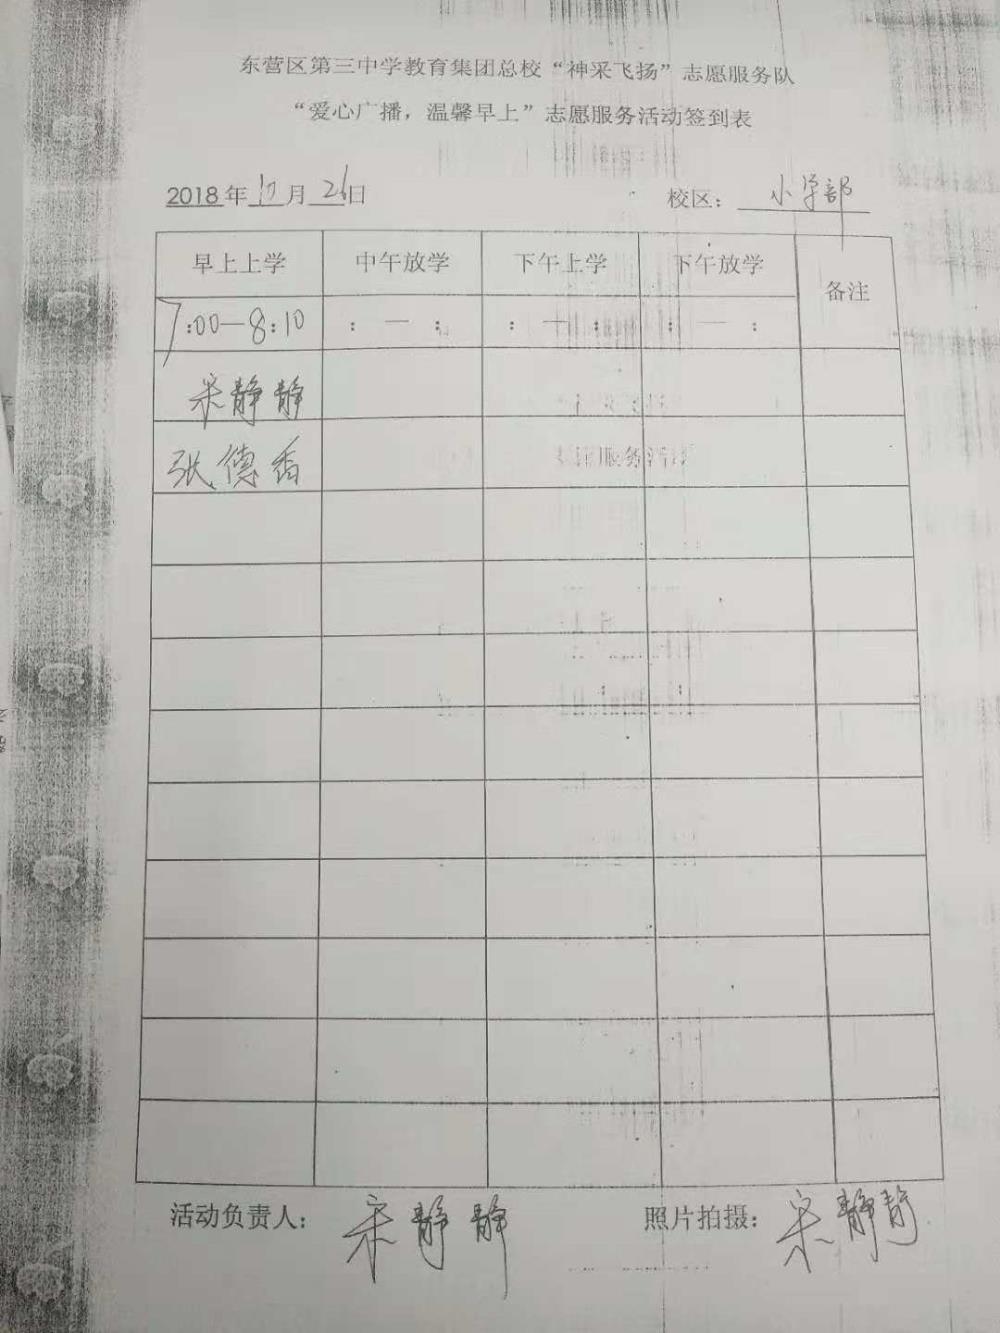 东营区第三中学教育集团总校“神采飞扬”志愿服务队
“爱心广播，温馨早上”志愿服务活动签到表
2018年 月26日 校区：小学部
早上上学 中午放学 下午上学 下午放学 备注
7:00—8:10 ：—： ：—： ：—：
宋静静
张德香
活动负责人：宋静静 照片拍摄：宋静静